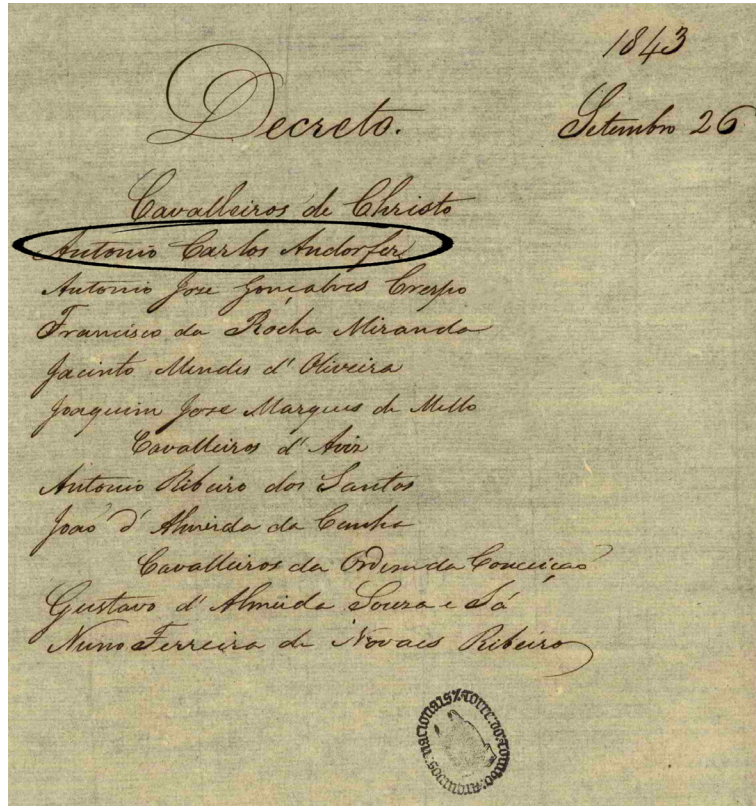 1843
Decreto.
Setembro 26
Cavalleiros de Christo
Antonio Carlos Andorfer
Antonio Jose Gonçalves Crespo
Francisco da Rocha Miranda
Jacinto Mendes d'Oliveira
Joaquim Jose Marques de Mello
Cavalleiros d'Aviz
Antonio Ribeiro dos Santos
João d'Almeida da Cunha
Cavalleiros da Ordem da Conceiçaõ
Gustavo d'Almeida Souza e Sá
Nuno Ferreira de Novaes Ribeiro
ARQUIVOS NACIONAIS / TORRE DO TOMBO